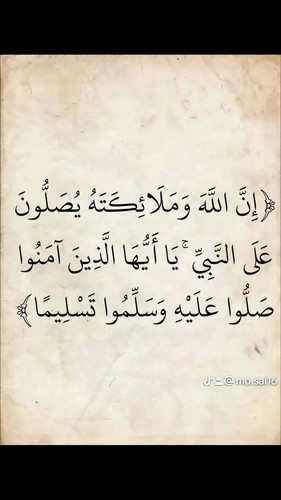 ﴿إِنَّ اللَّهَ وَمَلَائِكَتَهُ يُصَلُّونَ
عَلَى النَّبِيِّ ۚ يَا أَيُّهَا الَّذِينَ آمَنُوا
صَلُّوا عَلَيْهِ وَسَلِّمُوا تَسْلِيمًا﴾
@mo.sal16